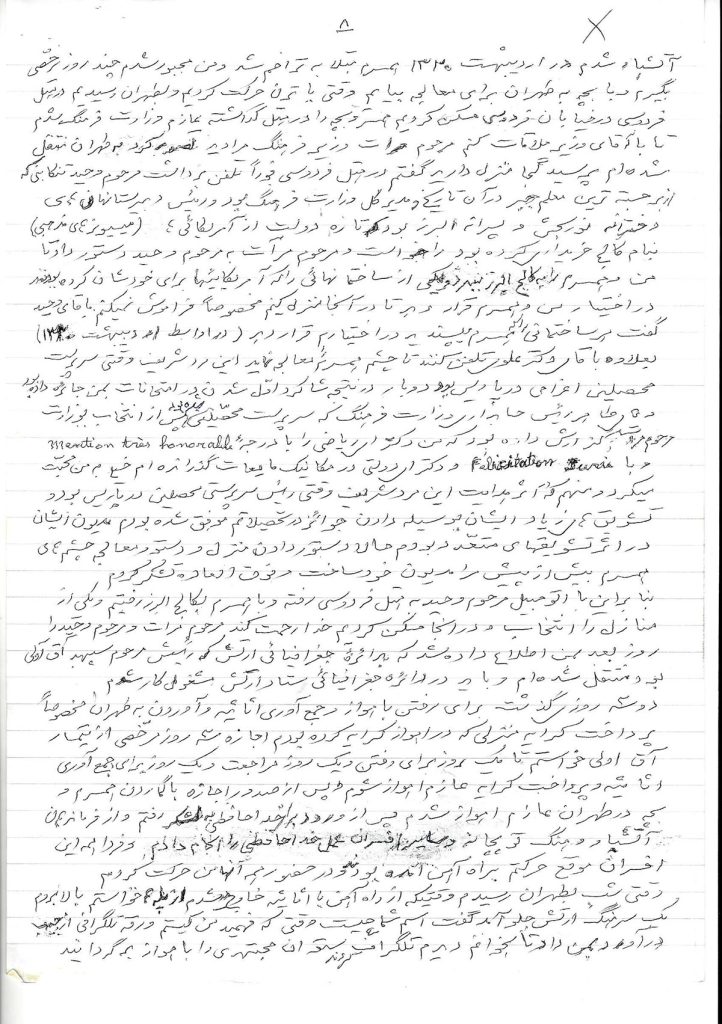 ۸
آشنا شدم در اردیبهشت ۱۳۲۰ همسرم مبتلا به تراخم شد و من مجبور شدم چند روز مرخصی
بگیرم و با بچه به طهران برای معالجه بیایم وقتی با ترن حرکت کردیم و بطهران رسیدیم در هتل
فردوسی در خیابان فردوسی مسکن کردیم همسر و بچه را در هتل گذاشته عازم وزارت فرهنگ شدم
تا با آقای وزیر ملاقات کنم مرحوم مرآت وزیر فرهنگ مرا دید تصور کرد به طهران منتقل
شده‌ام پرسید کجا منزل دارید گفتم در هتل فردوسی فوراً تلفن برداشت مرحوم وحید تنکابنی که
از برجسته ترین معلم جبر در آن تاریخ و مدیر کل وزارت فرهنگ بود و رئیس دبیرستانهای
دخترانه نوربخش و پسرانه البرز بود که تازه دولت از آمریکائی‌ها (میسیونرهای مذهبی)
بنام کالج خریداری کرده بود را خواست و مرحوم مرآت به مرحوم وحید دستور داد تا
من و همسرم را به کالج البرز ببرد و یکی از ساختمانهائی را که آمریکائیها برای خودشان کرده بودند
در اختیار من و همسرم قرار دهد تا در آنجا منزل کنم مخصوصاً فراموش نمیکنم باقای وحید
گفت هر ساختمانی را که همسرم پسندید در اختیارم قرار دهید (در اواسط اردیبهشت ۱۳۲۰)
بعلاوه با آقای دکتر علوی تلفن کنند تا چشم همسرم را معالجه نماید این مرد شریف وقتی سرپرست
محصلین اعزامی در پاریس بود دوبار در نتیجه شاگرد اول شدن در امتحانات بمن جائزه داده بود
رئیس حسابداری وزارت فرهنگ که سرپرست محصلین شده بود پس از انتخاب بوزارت
مرحوم مرآت گزارش داده بود که من دکترای ریاضی را با درجه mention très honorable
و با Félicitation و دکترای دولتی در مکانیک مایعات گذرانده‌ام خیلی به من محبت
میکرد و منهم که اثر هدایت این مرد شریف وقتی رئیس سرپرستی محصلین در پاریس بود و
تشویق‌های زیاد ایشان بوسیله دادن جوائز در تحصیلاتم موفق شده بودم مدیون ایشان
در اثر تشویقهای متعدد بودم حالا دستور دادن منزل و دستور معالجه چشم‌های
همسرم بیش از پیش مرا مدیون خود ساخت و فوق العاده تشکر کردم
بنابراین با اتومبیل مرحوم وحید به هتل فردوسی رفته و با همسرم بکالج البرز رفتیم و یکی از
منازل را انتخاب و در آنجا مسکن کردیم خدا رحمت کند مرحوم مرآت و مرحوم وحید را
روز بعد بمن اطلاع داده شد که بدائره جغرافیائی ارتش که رئیسش مرحوم سپهبد آق اولی
بود منتقل شده‌ام و باید در دائره جغرافیائی ستاد ارتش مشغول کار شوم
دو سه روزی گذشت برای رفتن باهواز و جمع آوری اثاثیه و آوردن به طهران مخصوصاً
پرداخت کرایه منزلی که در اهواز کرایه کرده بودم اجازه سه روز مرخصی از تیمسار
آق اولی خواستم تا یک روز برای رفتن و یک روز مراجعت و یک روز برای جمع آوری
اثاثیه و پرداخت کرایه عازم اهواز شوم پس از صدور اجازه با گذاردن همسرم و
بچه در طهران عازم اهواز شدم پس از ورود برای خداحافظی به لشکر رفتم و از فرماندهان
آتشبار و هنگ توپخانه و سایر افسران عمل خداحافظی را انجام دادم و فردا همه این
افسران موقع حرکتم براه آهن آمده بودند و در حضور همه آنها من حرکت کردم
وقتی شب بطهران رسیدم وقتیکه از راه آهن با اثاثیه خارج شدم از پله‌ها میخواستم بالا بروم
یک سرهنگ ارتش جلو آمد گفت اسم شما چیست وقتی که فهمید من کیستم ورقه تلگرافی از جیب
درآورد و بمن داد تا بخوانم دیدم تلگراف کردند ستوان مجتهدی را باهواز برگردانید